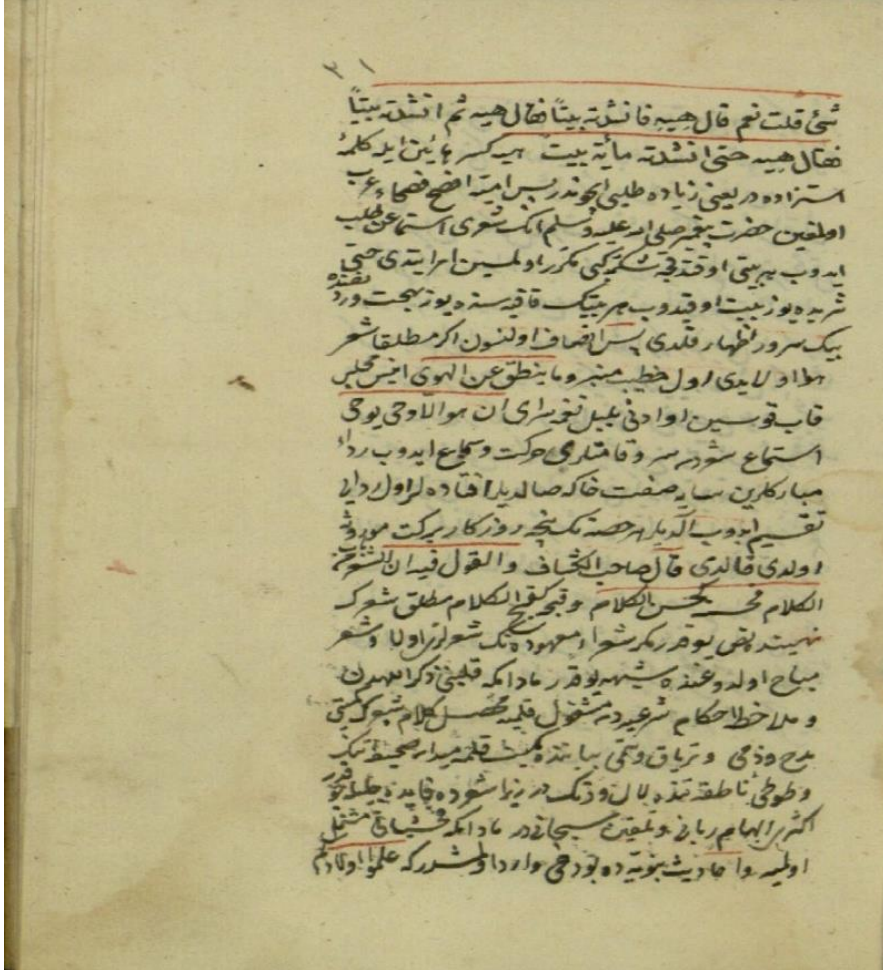 ٣١
شئ قلت نعم قال هيه فانشدته بيتاً فقال هيه ثم انشدته بيتاً
فقال هيه حتى انشدته مائة بيت هيه كسر هائين ايله كلمهٔ
استزاده در يعنى زياده طلبى ايچوندر پس اميه افصح فصحاء عرب
اولمغين حضرت پيغمبر صلى الله عليه وسلم انك شعرى استماعن طلب
ايدوب هر بيتى اوقندقجه مكرر اولمسين امر ايتدى حتى
شريده يوز بيت اوقيدوب هر بيتك قافيه سنده يوز بهجت ورد
بيك سرور اظهار قلدى پس انصاف اولنسون اكر مطلقا شعر
هوا اولايدى اول خطيب منبر وما ينطق عن الهوى انيس مجلس
قاب قوسين او ادنى بلبل نغمه سراى ان هو الا وحى يوحى
استماع شودن سر و قامتلرى حركت وسماع ايدوب رداء
مباركلرين سايه صفت خاكه صالديلر افتاده لر اول ردايى
تقسيم ايدوب آلديلر هر حصه نك نيجه روزكار بركت موروث
اولدى قالدى قال صاحب الكشاف والقول فيه ان الشعر
الكلام فحسنه كحسن الكلام وقبحه كقبح الكلام مطلق شعرك
نهيينه نص يوقدر مكر شعراء معهوده نك شعرلرى اولا وشعر
مباح اولدوغنده شبهه يوقدر مادامكه قلبنى ذكر اللهدن
وملاحظهٔ احكام شرعيه دن مشغول قلميه محصل كلام شعرك
مدح وذمى وترياق وسمى بيانده كميت قلمه ميدان
وطوطئ ناطقه نده لال ودنك در زيرا شوده
اكثرى الهام ربانى وتلقين سبحانى در مادامكه مشتمل
اولميه واحاديث نبويه ده بودخى وارد اولمشدركه علموا اولادكم